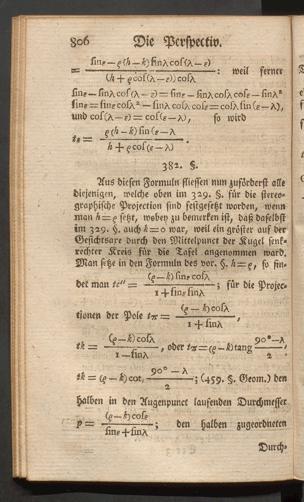 806 Die Perspectiv.
= (sin ε − ρ(h − k) sin λ cos(λ − ε)) / ((h + ρ cos(λ − ε)) cos λ) : weil ferner
sin ε − sin λ cos(λ − ε) = sin ε − sin λ cos λ cos ε − sin λ²
sin ε = sin ε cos λ² − sin λ cos λ cos ε = cos λ sin(ε − λ),
und cos(λ − ε) = cos(ε − λ), so wird
tε = ρ(h − k) sin(ε − λ) / (h + ρ cos(ε − λ)).
382. §.
Aus diesen Formuln fliessen nun zuförderst alle
diejenigen, welche oben im 329. §. für die stereo-
graphische Projection sind festgesetzt worden, wenn
man h = ρ setzt, wobey zu bemerken ist, daß daselbst
im 329. §. auch k = 0 war, weil ein größter auf der
Gesichtsare durch den Mittelpunct der Kugel senk-
rechter Kreis für die Tafel angenommen ward.
Man setze in den Formuln des vor. §. h = ρ, so fin-
det man tc'' = (ρ − k) sin ε cos λ / (1 + sin ε sin λ); für die Projec-
tionen der Pole tπ = (ρ − k) cos λ / (1 + sin λ),
tk = (ρ − k) cos λ / (1 − sin λ), oder tπ = (ρ − k) tang (90° − λ)/2,
tk = (ρ − k) cot. (90° − λ)/2; (459. §. Geom.) den
halben in den Augenpunct laufenden Durchmesser
p = (ρ − k) cos ε / (sin ε + sin λ); den halben zugeordneten
Durch-